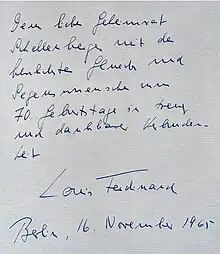 Dem lieben Geheimrat
Schellenberger mit den
herzlichsten Glueck und
Segenswuenschen zum
70. Geburtstage in treuer
und dankbarer Verbunden-
heit
Louis Ferdinand
Berlin, 16. November 1965